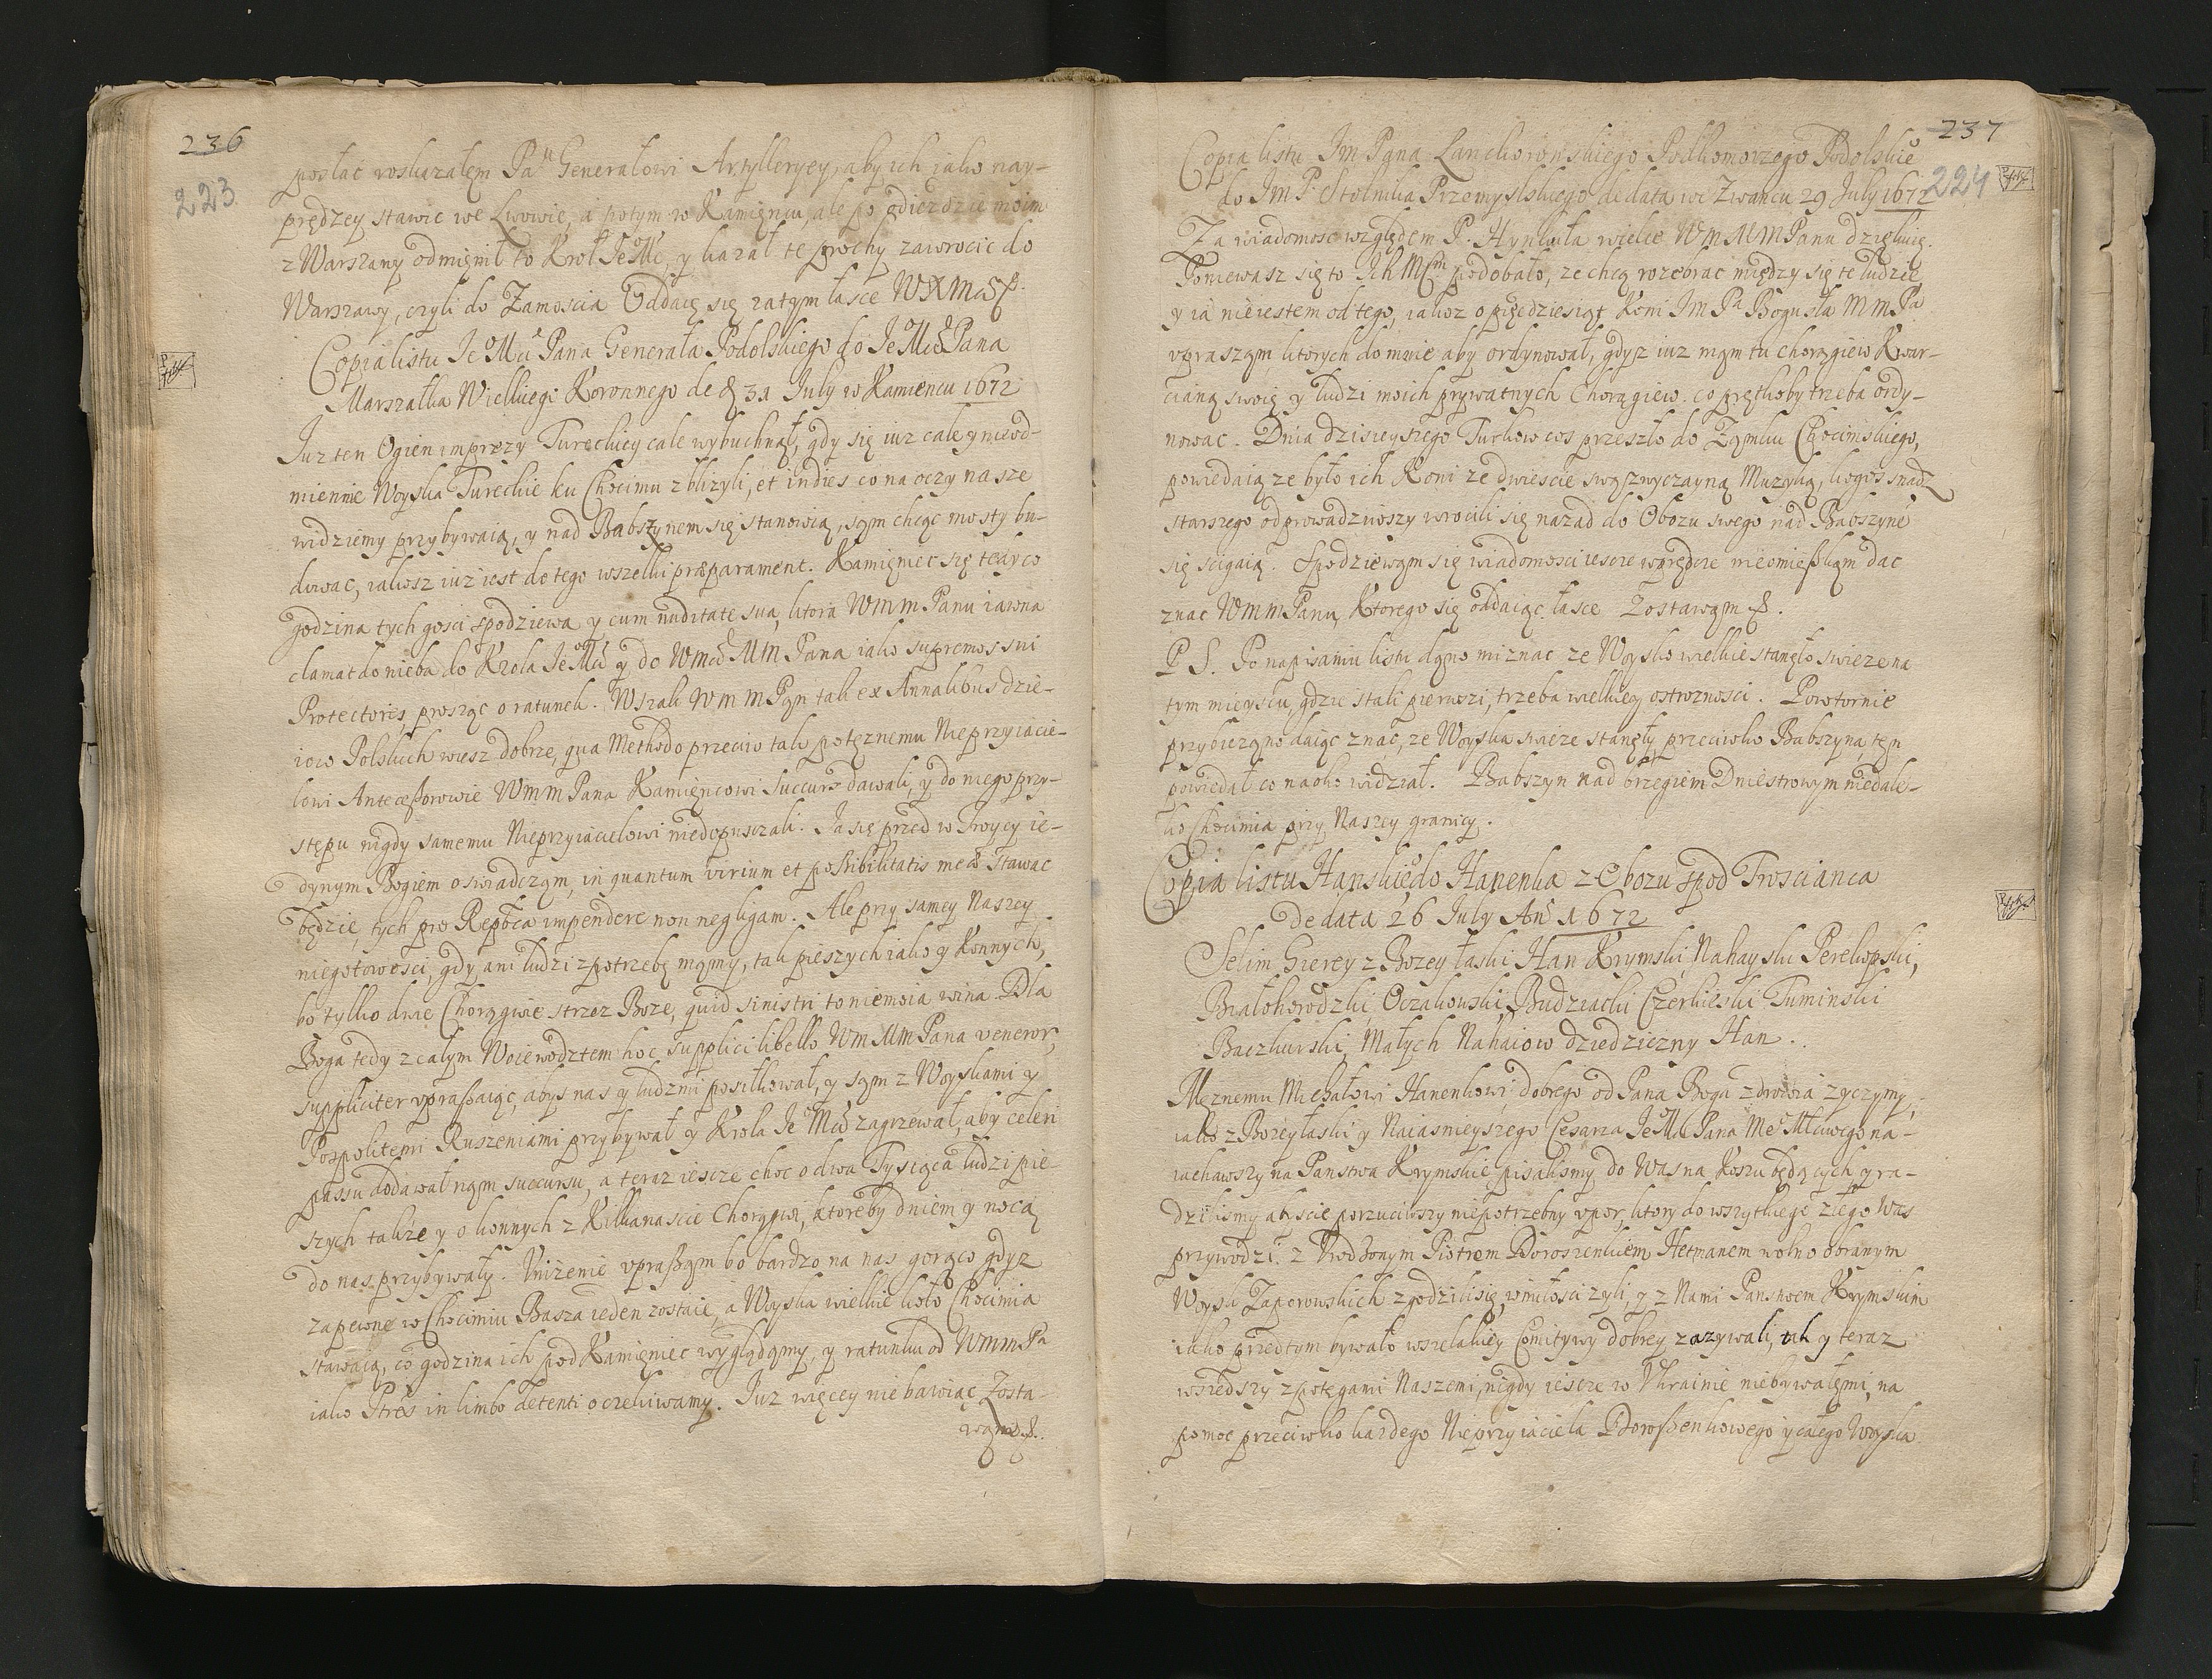 236
223
posłac roskazałem Pau Generałowi Artylleryey, aby ich iako nay-
prędzey stawić we Lwowie, a potym w Kamięncu, ale po odiezdzie moim
z Warszawy odmięnił to Krol JeoMć, y kazał te prochy zawrocic do
Warszawy, czyli do Zamoscia Oddaię się zatym łasce WXMci &.
Copia listu JeoMci Pana Generała Podolskiego do JeoMci Pana
Marszałka Wielkiego Koronnego de d 31 July w Kamiencu 1672
Iuz ten Ogien imprezy Tureckiey cale wybuchnął, gdy się iuz cale y nieod-
miennie Woyska Tureckie ku Chocimu zblizyli, et indies co na oczy nasze
widziemy przybywaią, y nad Babszynem się stanowią, sąm chcąc mosty bu-
dować, iakosz iuz iest do tego wszelki præparament. Kamięniec się tedy co
godzina tych gosci spodziewa y cum nuditate sua, ktora WMM Panu iawna
clamat do nieba do Krola JeoMci y do WMci MM Pana iako supremos sui
Protectores, prosząc o ratunek. Wszak WMMPąn tak ex Annalibus dzie-
iow Polskich wiesz dobrze, qua Methodo przeciw tak potęznemu Nieprzyiacie-
lowi Anteceßorowie WMMPana Kamięncowi succurs dawali, y do niego przy-
stępu nigdy samemu Nieprzyiacielowi niedopusczali. Ja się przed w Troycy ie-
dynym Bogiem oswiadcząm, in quantum virium et poßibilitatis meæ stawac
będzie, tych pro Repbca impendere non negligam. Ale przy samey Naszey
niegotowosci, gdy ani ludzi z potrzebę mąmy, tak pieszych iako y Konnych,
bo tylko dwie Chorągwie strzez Boze, quid sinistri to nie moia wina. Dla
Boga tedy z calym Woiewodztem hoc supplici libello WmMMPana veneror,
suppliciter vpraßaiąc, abys nas y ludzmi posiłkował, y sąm z Woyskami y
Pospolitemi Ruszeniami przybywał y Krola JeoMci zagrzewał, aby celeri
passu dodawał nąm succursu, a teraz iescze choc o dwa Tysiąca ludzi pie-
szych takze y o konnych z Kilkanascie Chorągwi, ktoreby dniem y nocą
do nas przybywały. Vnizenie vpraßąm bo bardzo na nas gorąco gdyz
zapewne w Chocimiu Basza ieden zostaie, a Woyska wielkie koło Chocimia
stawaią, co godzina ich pod Kamięniec wyglądąmy, y ratunku od WmmPa
iako Ptres in limbo detenti oczekiwamy. Iuz więcey niebawiąc zosta-
wąm &.
237
224
Copia listu Jm Pana Lanckorońskiego Podkomorzego Podolskie
do Jm P. Stolnika Przemyslskiego de data we Zwancu 29 July 1672
Za wiadomosc względem P. Hynkuła wielce WmMMPanu dziękuię.
Poniewasz się to Ich Mciom podobało, ze chcą rozebrac między się te ludzie
y ia nie iestem od tego, iakoz o pięcdziesiąt Koni Jm Pa Bogusła MmPa
vprasząm, ktorych do mnie aby ordynował, gdyz iuz mąm tu chorągiew Kwar-
cianą swoię y ludzi moich prywatnych Chorągiew. co prętkoby trzeba ordy-
nowac. Dnia dzisieyszego Turkow cos przeszło do Zamku Chocimskiego,
powiedaią ze było ich Koni ze dwiescie swą zwyczayną Muzyką, kogos snadz
starszego odprowadziwszy wrocili się nazad do Obozu swego nad Babszyne
się sciągaią. Spodziewąm się wiadomosci iescze wprędce nieomießkąm dac
znac WmmPanu, Ktorego się oddaiąc łasce Zostawąm &.
P S. Po napisaniu listu dano mi znac ze Woysko wielkie stanęło swieze na
tym mieyscu, gdzie stali pierwszi, trzeba wielkiey ostroznosci. Powtornie
przybiezono daiąc znac, ze Woyska swieze stanęły przeciwko Babszyna, tęn
powiedał co naoko widział. Babszyn nad brzegiem Dniestrowym niedale-
ko Chocimia przy Naszey granicy.
Copia listu Hanskieo do Hanenka z Obozu spod Troscianca
de data 26 July Ano 1672
Selim Gierey z Bozey łaski Han Krymski, Nahayski Perekopski,
Białohorodzki, Oczakowski, Budziacki Czerkieski Tuminski
Baczkurski, Małych Nahaiow dziedziczny Han.
Męznemu Michałowi Hanenkowi, dobrego od Pana Boga zdrowia zyczymy,
iako z Bozey łaski y Naiasnieyszego Cesarza JeoMci Pana Meo Mciwego na-
iachawszy na Panstwa Krymskie pisalismy do Was na Koszu będących y ra-
dzilismy abyscie porzuciwszy niepotrzebny vpor, ktory do wszytkiego złego Was
przywodzi. z Vrodzonym Piotrem Doroszenkiem Hetmanem wolno obranym
Woysk Zaporowskich zgodzili się, w miłosci zyli, y z Nami Panstwem Krymskim
iako przedtym bywało wszelakiey Comitywy dobrey zazywali, tak y teraz
wszedszy z potęgami Naszemi, nigdy iescze w Vkrainie niebywałęmi, na
pomoc przeciwko kazdego Nieprzyiaciela Doroßenkowego y całego Woyska